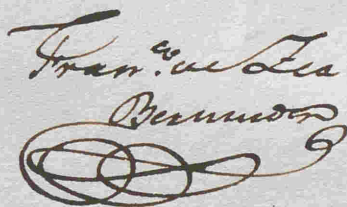 Franco. de Zea
Bermudez